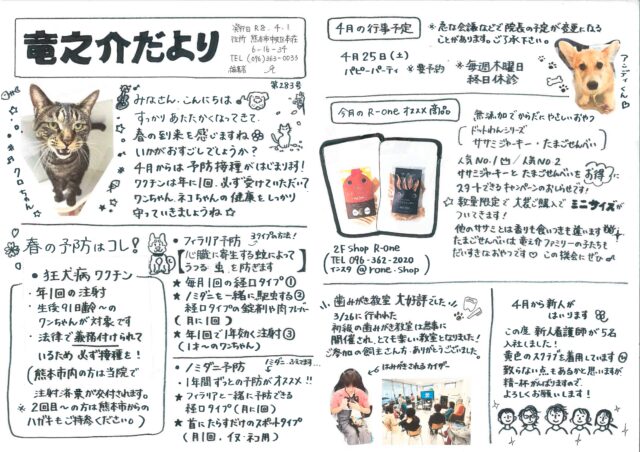 竜之介だより
発行日 R8.4.1
住所 熊本市中央区本荘
6-16-34
TEL (096)363-0033
編集者
第283号
みなさん、こんにちは
すっかりあたたかくなってきて、
春の到来を感じますね
いかがおすごしでしょうか?
4月からは予防接種がはじまります!
ワクチンは年に1回、必ず受けていただいて
ワンちゃん、ネコちゃんの健康をしっかり
守っていきましょうね☆
春の予防はコレ!
・狂犬病ワクチン
・年1回の注射
・生後91日齢〜の
ワンちゃんが対象です
・法律で義務付けられて
いるため必ず接種を!
(熊本市内の方は当院で
注射済票が交付されます。
※2回目〜の方は熊本市からの
ハガキもご持参ください。)
・フィラリア予防
3タイプの方法!
心臓に寄生する蚊によって
うつる虫を防ぎます
★毎月1回の経口タイプ①
★ノミダニを一緒に駆虫する②
経口タイプの錠剤や肉フレーバー
(月に1回)
★年1回で1年効く注射③
(1才〜のワンちゃん)
・ノミダニ予防
・1年間ずっとの予防がオススメ!!
★フィラリアと一緒に予防できる
経口タイプ(月に1回)
★首にたらすだけのスポットタイプ
(月1回、イヌ・ネコ用)
4月の行事予定
4月25日(土)
パピーパーティ ※要予約
※急な会議などで院長の予定が変更になる
ことがあります。ご了承下さい。
※毎週木曜日
終日休診
アンディくん
今月のR-one オススメ商品
2F Shop R-one
TEL 096-362-2020
インスタ @rone.shop
無添加でからだにやさしいおやつ
ドットわんシリーズ
ササミジャーキー・たまごせんべい
人気No.1 / 人気No2
ササミジャーキーとたまごせんべいをお得に
スタートできるキャンペーンのおしらせです!
数量限定で大袋ご購入でミニサイズが
ついてきます!
他のササミよりも香りも食いつきも違います
たまごせんべいは竜之介ファミリーの子たちも
だいすきなおやつです♡この機会にぜひ
歯みがき教室 大好評でした
3/26に行われた
初級の歯みがき教室は無事に
開催され、とても楽しい教室となりました!
ご参加の飼主さん方、ありがとうございました。
はみがきされるカイザー
4月から新人が
はいります
この度、新人看護師が5名
入社しました!
黄色のスクラブを着用しています
致らない点もあるかと思いますが
精一杯がんばりますので、
よろしくお願いします!